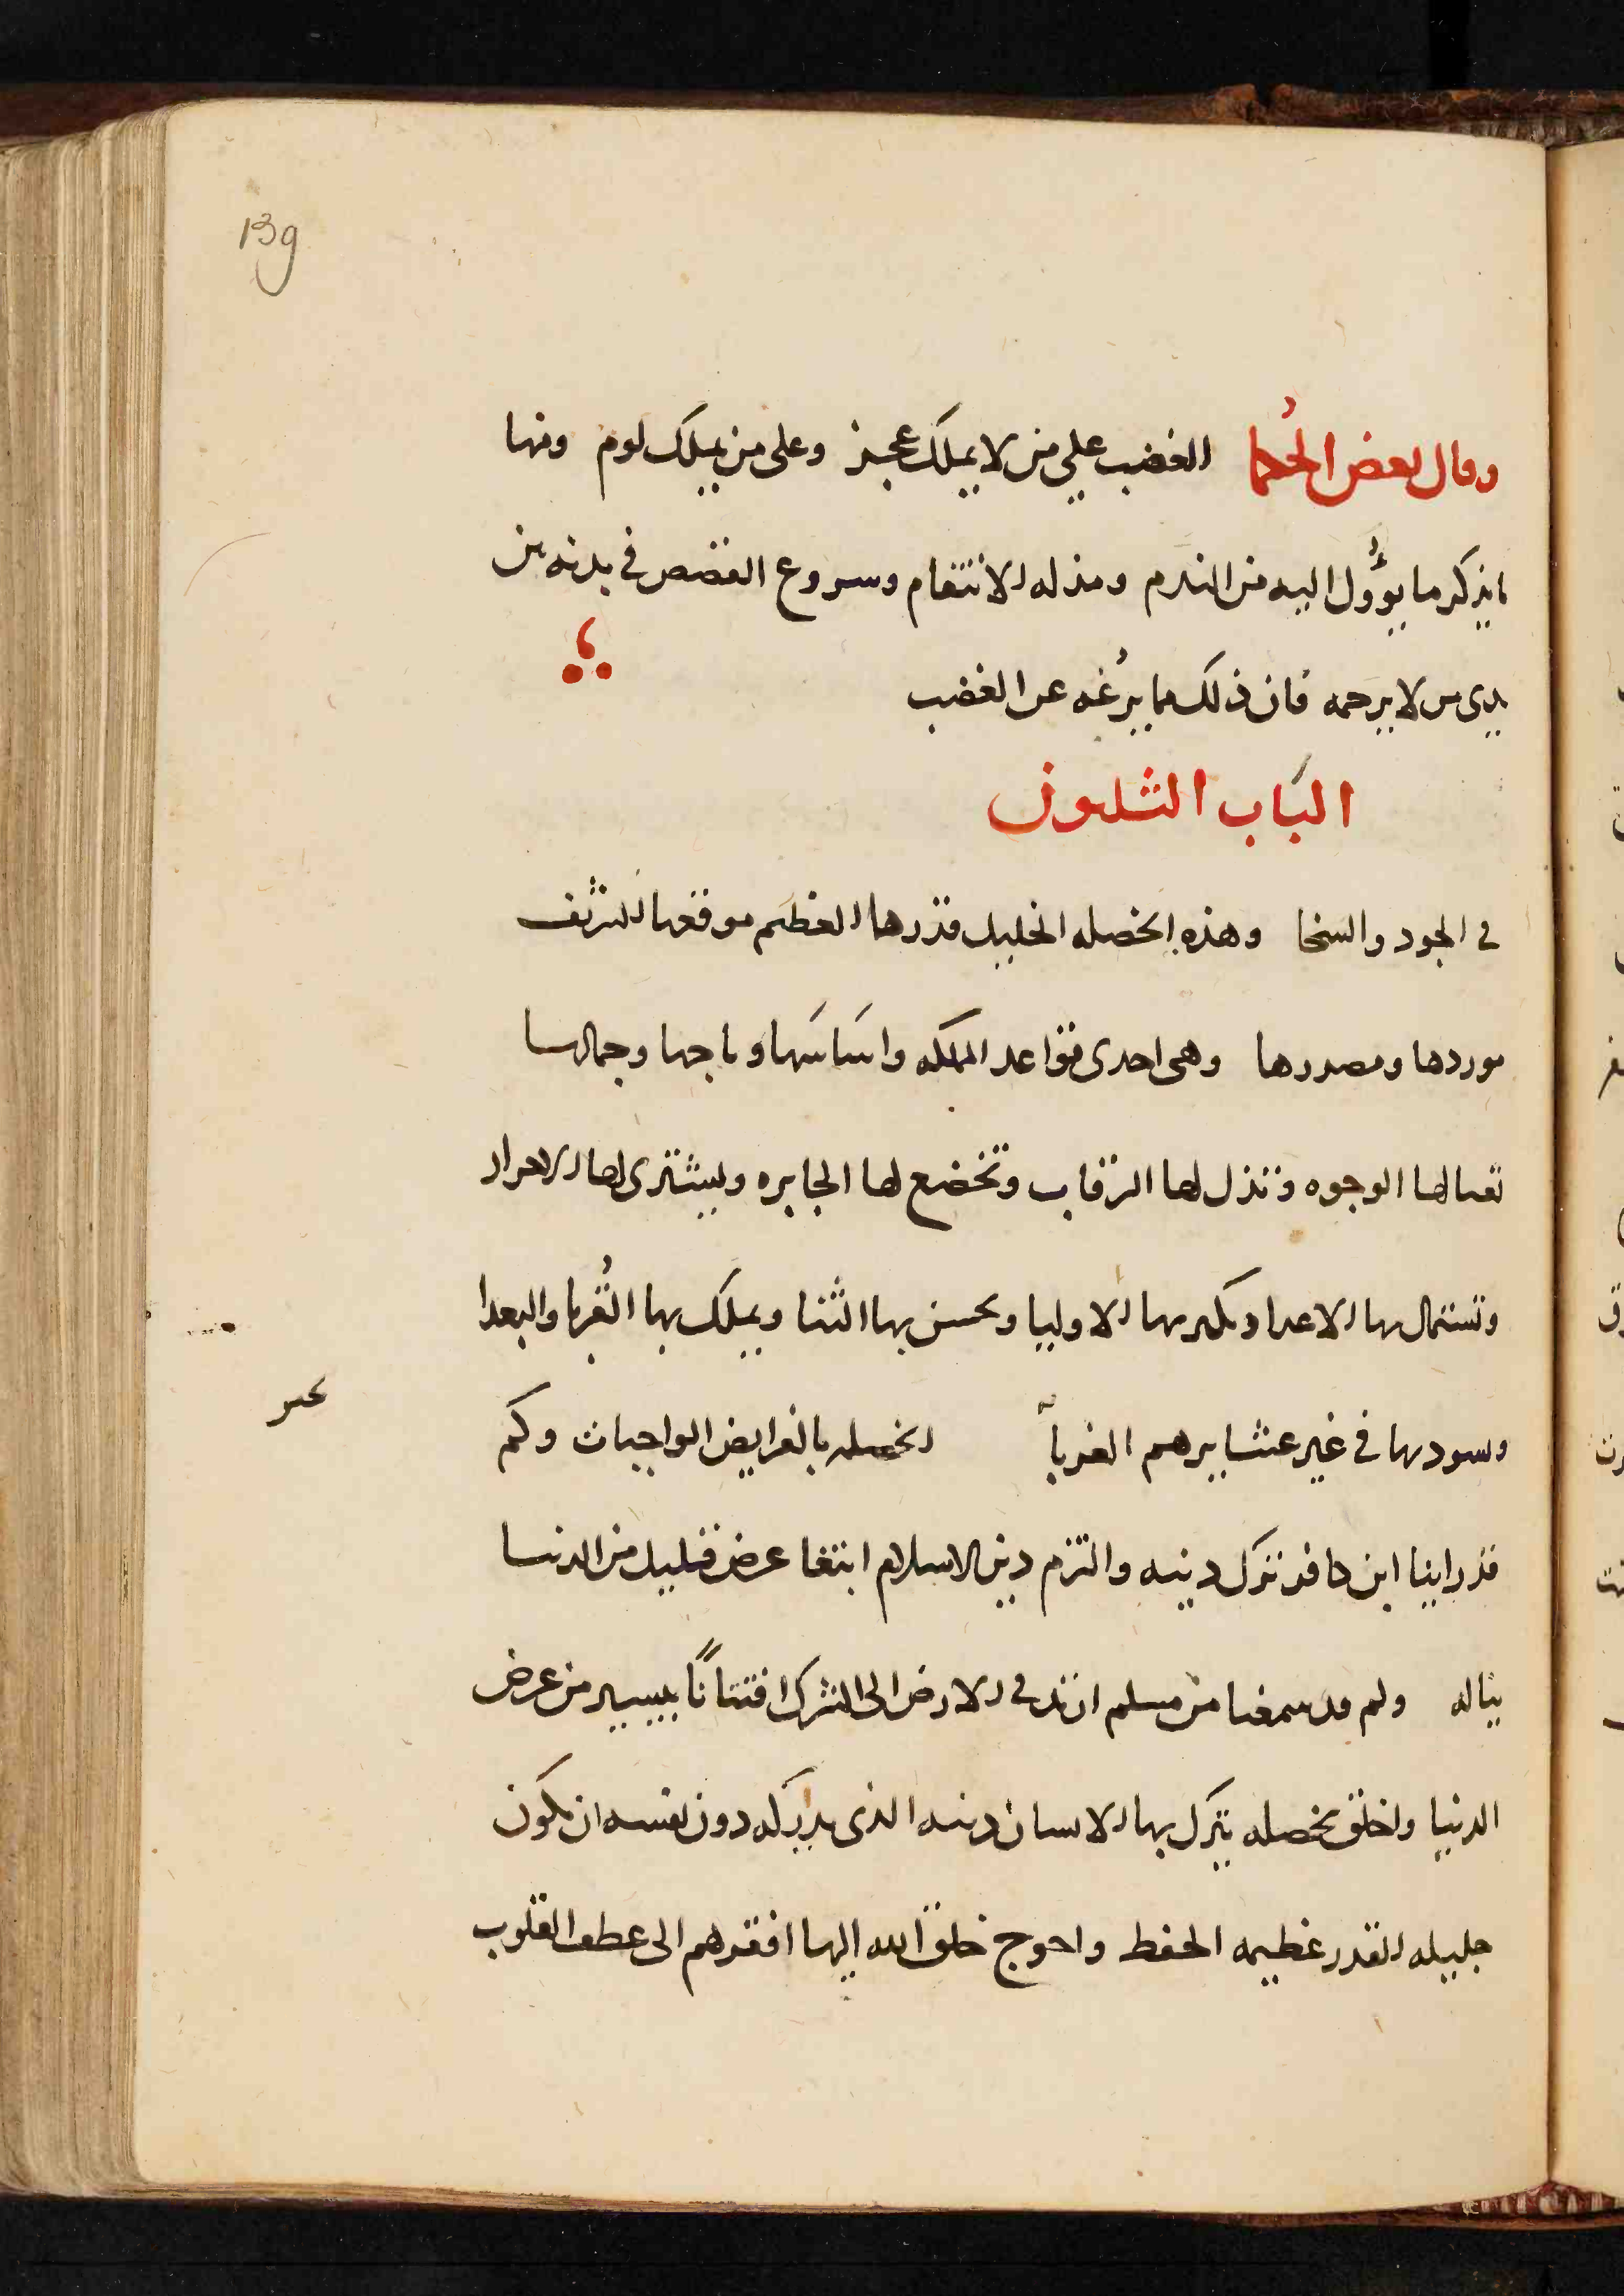 139
وقال بعض الحُكما الغضب على من لا يملك عجز وعلى من يملك لوم ومنها
ان يذكر ما يوُول اليه من الندم ومذله الانتقام وسروع القصص في بدنه بين
يدى من لا يرحمه فان ذلك مما يرُغه عن الغضب
الباب الثلثون
في الجود والسخا وهذه الخصله الجليل قدرها العظيم موقعها الشريف
موردها ومصدرها وهى احدى قواعد المملكه واساسها وتاجها وجمالها
تعنا لها الوجوه وتذل لها الرقاب وتخضع لها الجبابره ويسترق لها الاحرار
وتستمال بها الاعدا ويكثر بها الاوليا ويحسن بها الثنا ويملك بها القُربا والبعدا
ويسود بها في غير عشايرهم الغرباّ الخصله بالفرايض الواجبات وكم
قد راينا ابن كافر ترك دينه والتزم دين الاسلام ابتغا عرض قليل من الدنيا
يناله ولم قد سمعنا من مسلم ارتد في الارض الى الشرك افتتاناً بيسير من عرض
الدنيا واخلق بخصله يترك بها الانسان دينه الذى يبذل دون نفسه ان تكون
جليله القدر عظيمه الحفظ واحوج خلق الله اليها افقرهم الى عطف القلوب